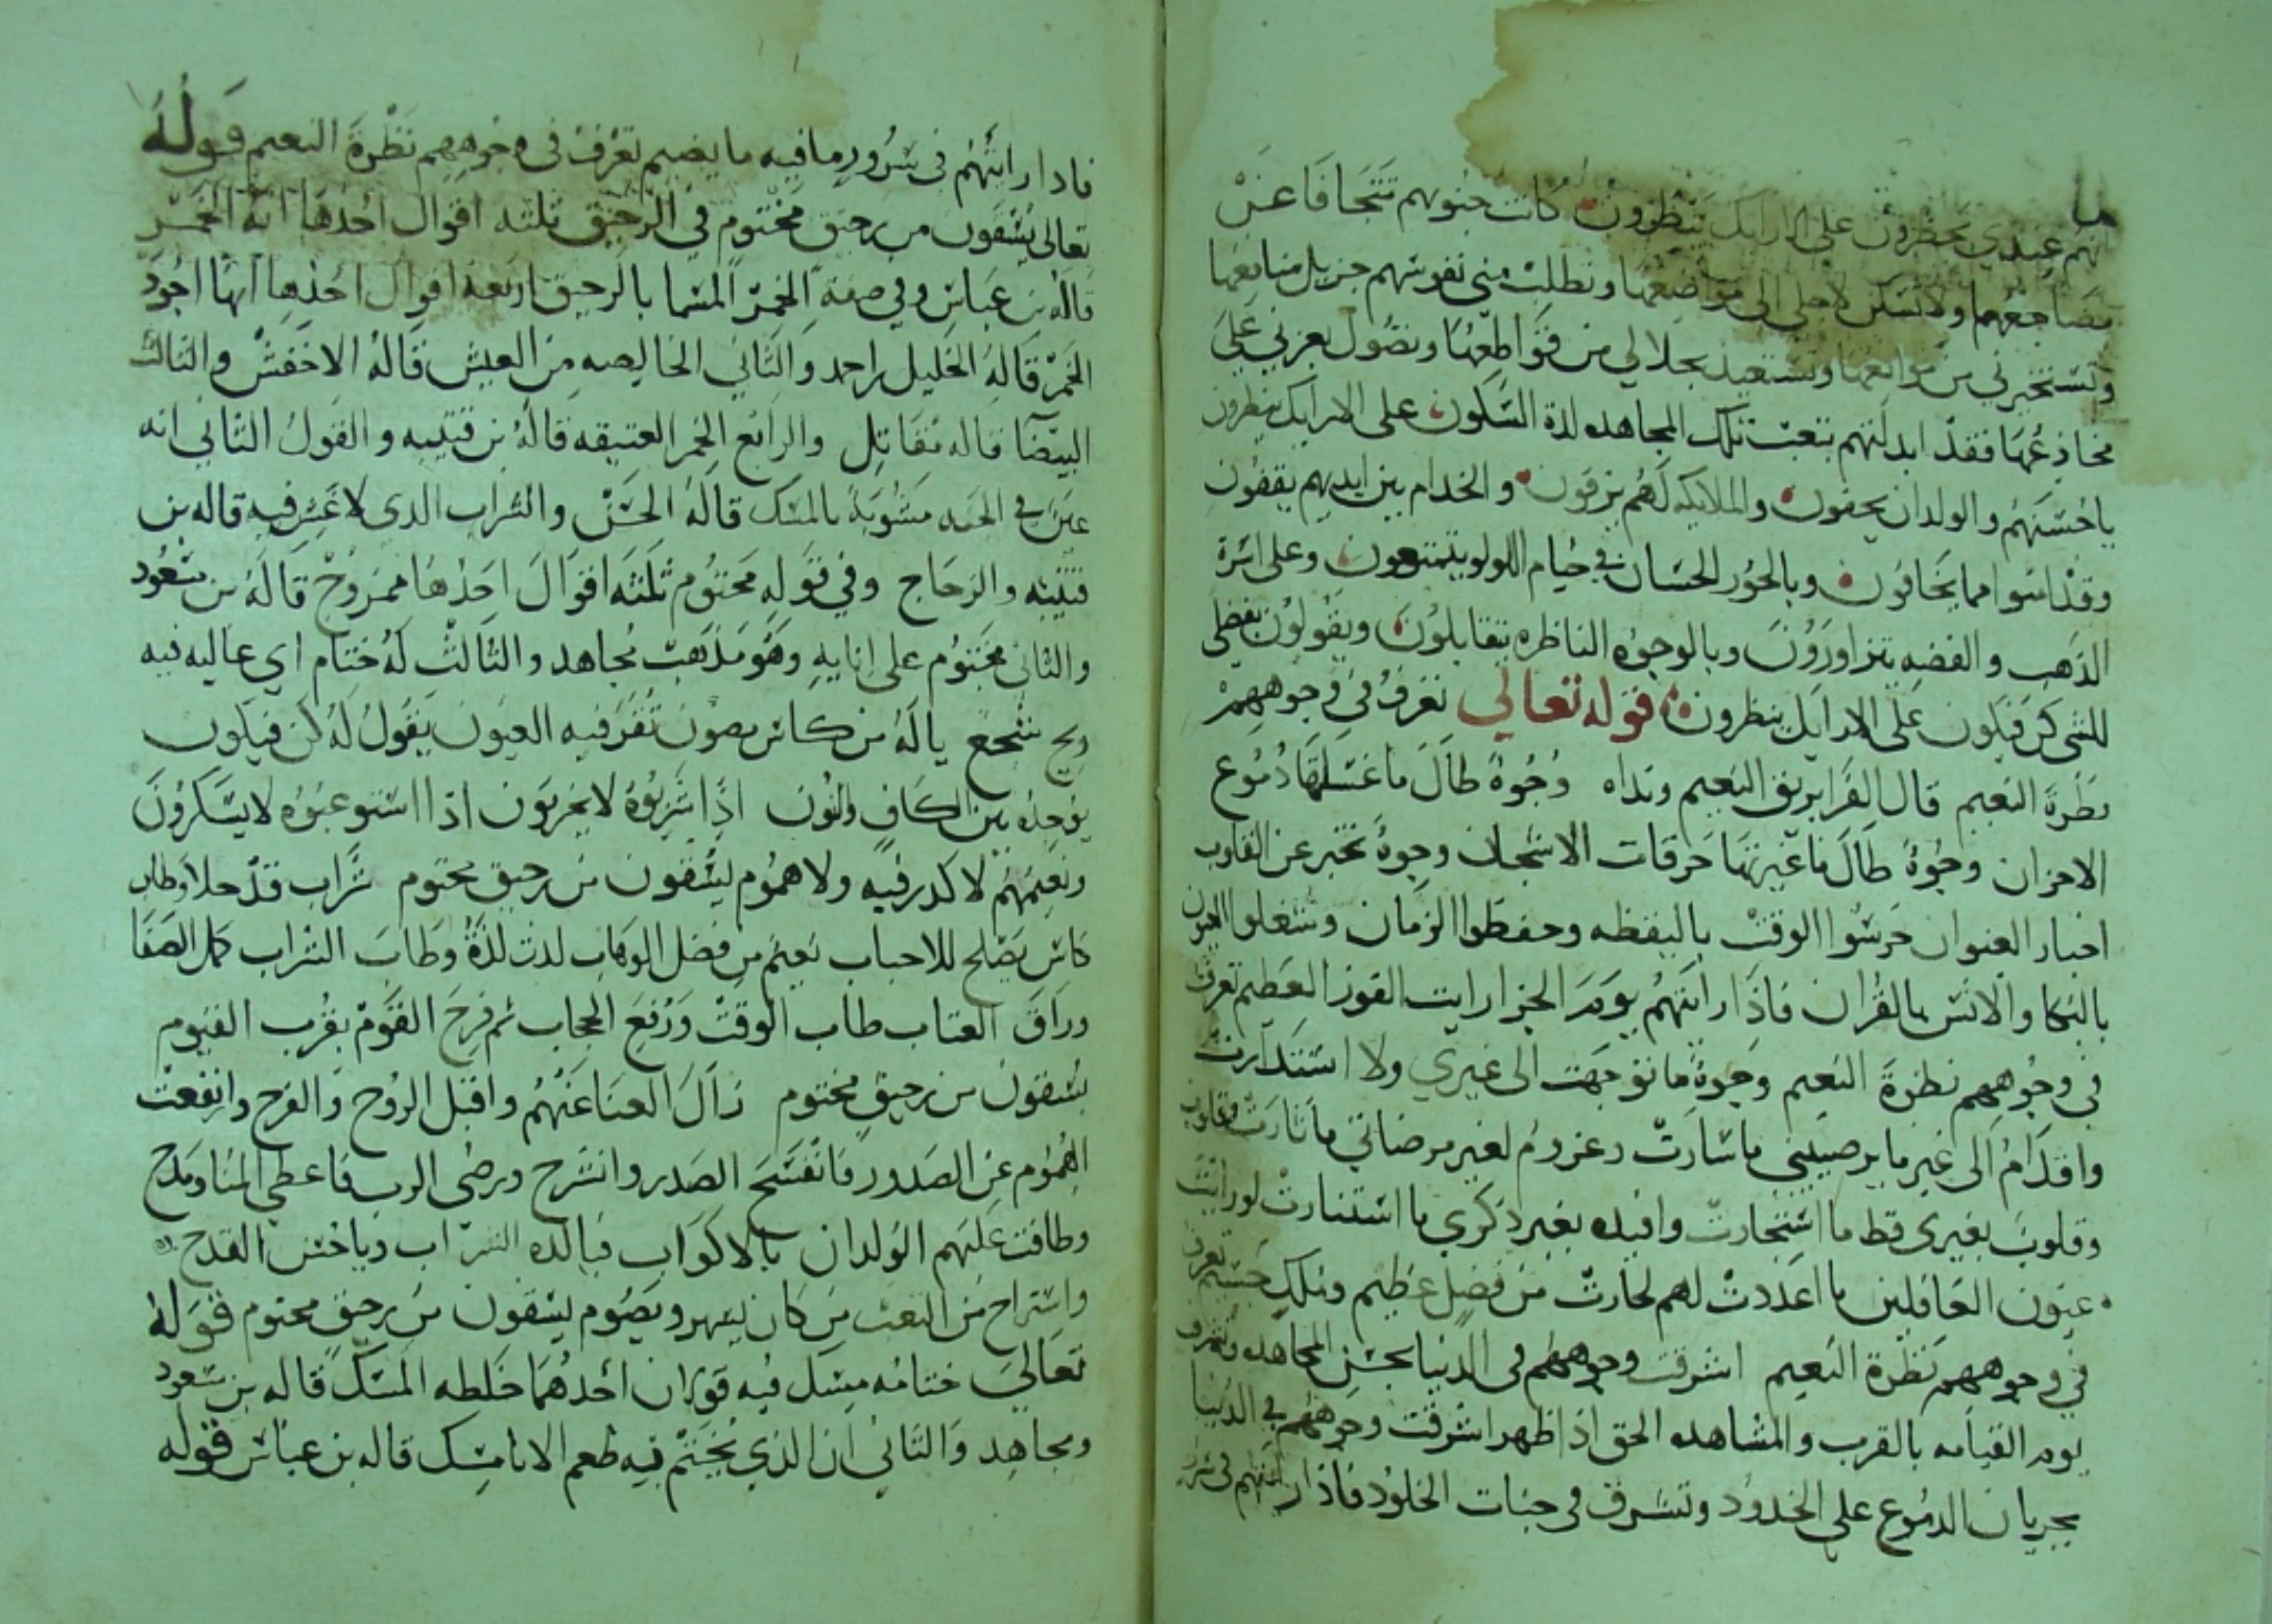 انهم عبيدي يحظرون على الارايك ينظرون كانت جنوبهم تتجافا عن
مضاجعهما ولا تسكن لاجلي الى مواضعها وتطلب مني نفوسهم جزيل منافعها
وتستجيرني من موانعها وتستعيذ بجلالي من قواطعها وتصول بعزني على
مخادعها فقد ابدلتهم بتعب تلك المجاهده لذة السكون على الارايك ينظرون
ياحسنهم والولدان يحفون والملايكه لهم يزفون والخدام بين ايديهم يقفون
وقد امنوا مما يخافون وبالحور الحسان في خيام اللولو يتمتعون وعلى اسرة
الذهب والفضه يتزاورون وبالوجوه الناظره يتقابلون ويقولون بفضلي
للشي كن فيكون على الارايك ينظرون قوله تعالى تعرف في وجوههم
نظرة النعيم قال الفرا بريق النعيم ونداه وجوه طال ما غسلها دموع
الاحزان وجوه طال ما غيرتها حرقات الاشجان وجوه تخبر عن القلوب
اخبار العنوان حرسوا الوقت باليقظه وحفظوا الزمان وشغلوا العيون
بالبكا والانس بالقران فاذا رايتهم يوم الجزا رايت الفوز العظيم تعرف
في وجوههم نظرة النعيم وجوه ما توجهت الى غيري ولا استدارت
واقدام الى غير ما يرضيني ما سارت وعزوم لغير مرضاتي ما ثارت
وقلوب بغيري قط ما استجارت وافيده بغير ذكري ما استنارت لو رايت
عيون الغافلين ما اعددت لهم لحارت من فضل عظيم وملك جسيم تعرف
في وجوههم نظرة النعيم اشرقت وجوههم في الدنيا بحسن المجاهده وتشرق
يوم القيامه بالقرب والمشاهده الحق اذا ظهر اشرقت وجوههم في الدنيا
بجريان الدموع على الخدود وتشرق في جنات الخلود فاذا رايتهم في
فاذا رايتهم في سرور وما فيه ما يضيم تعرف في وجوههم نظرة النعيم قوله
تعالى يسقون من رحيق مختوم في الرحيق ثلثه اقوال احدها انه الخمر
قاله بن عباس وفي صفة الخمر المسما بالرحيق اربعة اقوال احدها انها اجود
الخمر قاله الخليل بن احمد والثاني الخاليصه من الغش قاله الاخفش والثالث
البيضا قاله مقاتل والرابع الخمر العتيقه قاله بن قتيبه والقول الثاني انه
عين في الجنه مشوبة بالمسك قاله الحسن والشراب الذي لا غش فيه قاله بن
قتيبه والزجاج وفي قوله مختوم ثلثه اقوال احدها ممزوج قاله بن مسعود
والثاني مختوم على انايه وهو مذهب مجاهد والثالث له ختام اي عاليه فيه
ريح سجع ياله من كاس مصون تقر فيه العيون يقول له كن فيكون
يوجده بين الكاف والنون اذا شربوه لا يحزنون اذا استوعبوه لا يسكرون
ونعيمهم لا كدر فيه ولا هموم يسقون من رحيق مختوم شراب قد حلا وطاب
كاس يصلح للاحباب نعيم من فضل الوهاب لذت لذة وطاب الشراب كمل الصفا
وراق العتاب طاب الوقت ورفع الحجاب ثم فرح القوم بقرب القيوم
يسقون من رحيق مختوم زال العنا عنهم واقبل الروح والفرح وارتفعت
الهموم عن الصدور فانفسح الصدر وانشرح ورضي الرب فاعطى المنا ومدح
وطافت عليهم الولدان بالاكواب فيالذه الشراب وياحسن القدح
واستراح من التعب من كان يسهر ويصوم يسقون من رحيق مختوم قوله
تعالى ختامه مسك فيه قولان احدهما خلطه المسك قاله بن مسعود
ومجاهد والثاني ان الذي يختم فيه طعم الانا مسك قاله بن عباس قوله